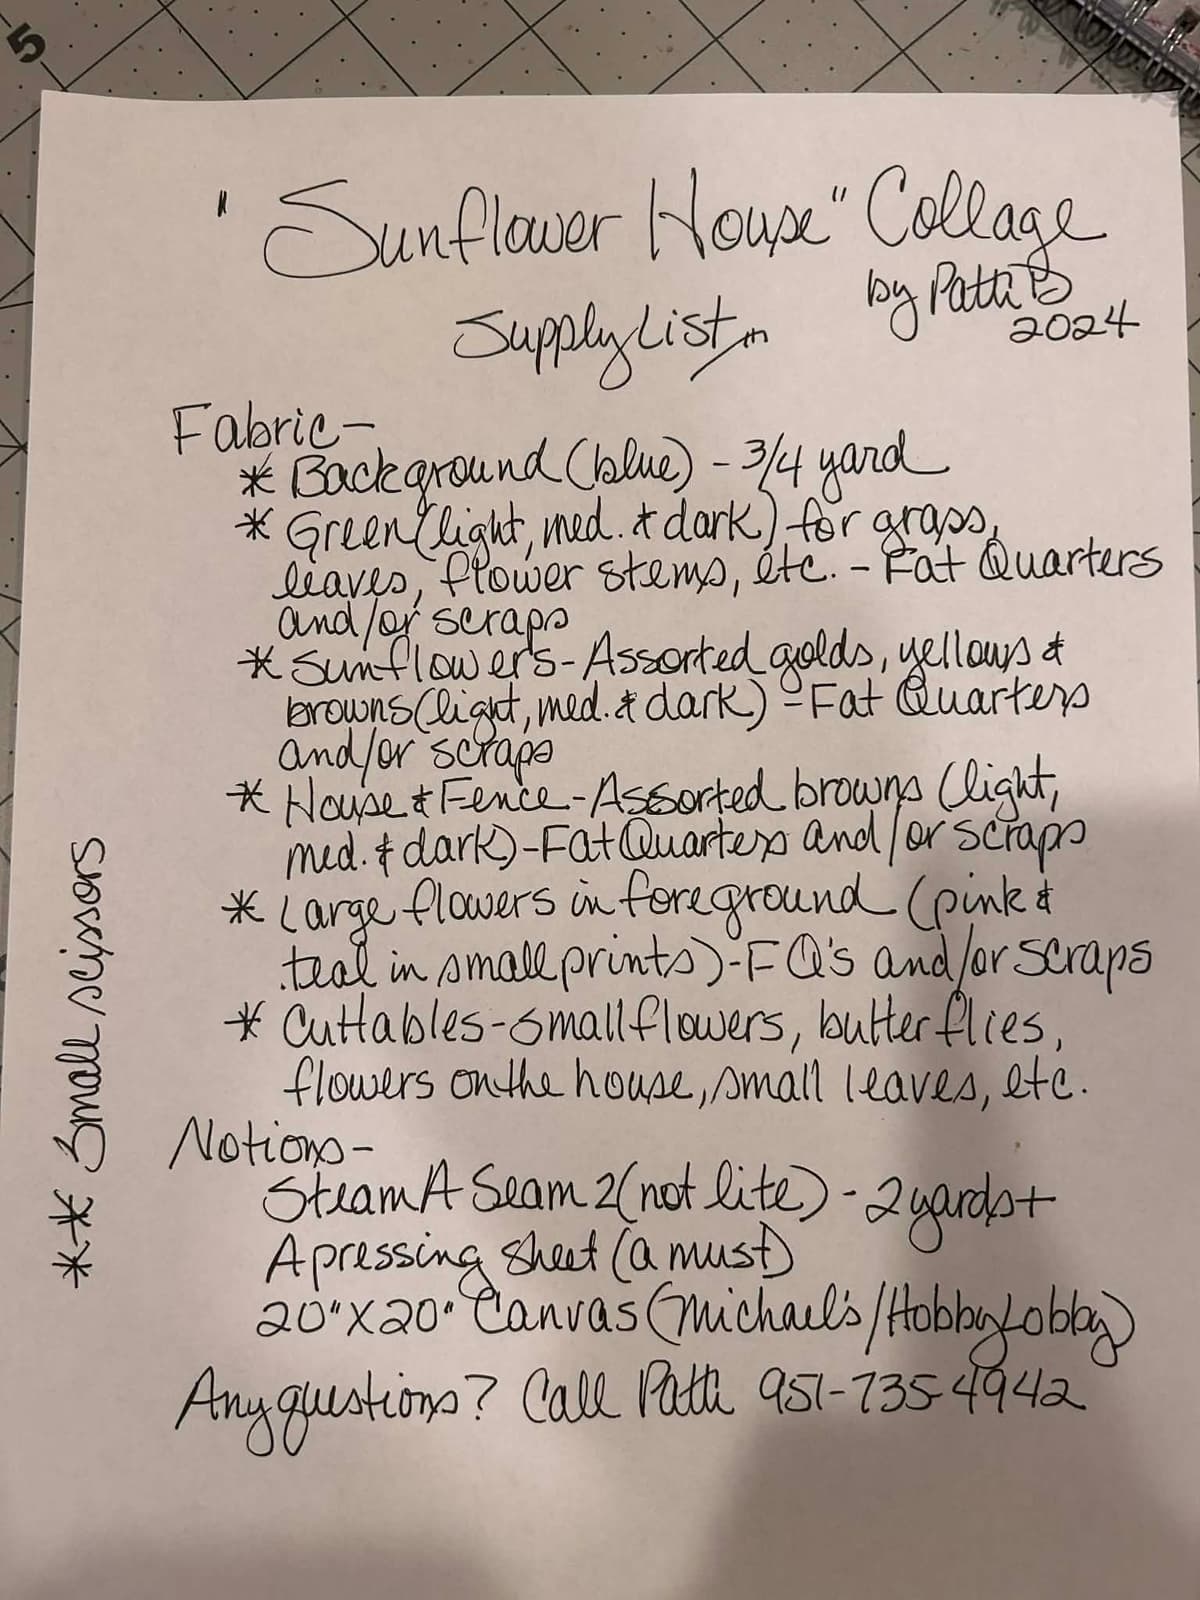 5
"Sunflower House" Collage
by Patti B
2024
Supply List
Fabric-
* Background (blue) - 3/4 yard
* Green (light, med. & dark) for grass,
leaves, flower stems, etc. - Fat Quarters
and/or scraps
* Sunflowers - Assorted golds, yellows &
browns (light, med. & dark) - Fat Quarters
and/or scraps
* House & Fence - Assorted browns (light,
med. & dark) - Fat Quarters and/or scraps
* Large flowers in foreground (pink &
teal in small prints) - FQ's and/or scraps
* Cuttables - small flowers, butterflies,
flowers on the house, small leaves, etc.
Notions-
Steam A Seam 2 (not lite) - 2 yards+
A pressing sheet (a must)
20" X 20" Canvas (Michael's/Hobby Lobby)
Any questions? Call Patti 951-735-4942
** Small scissors